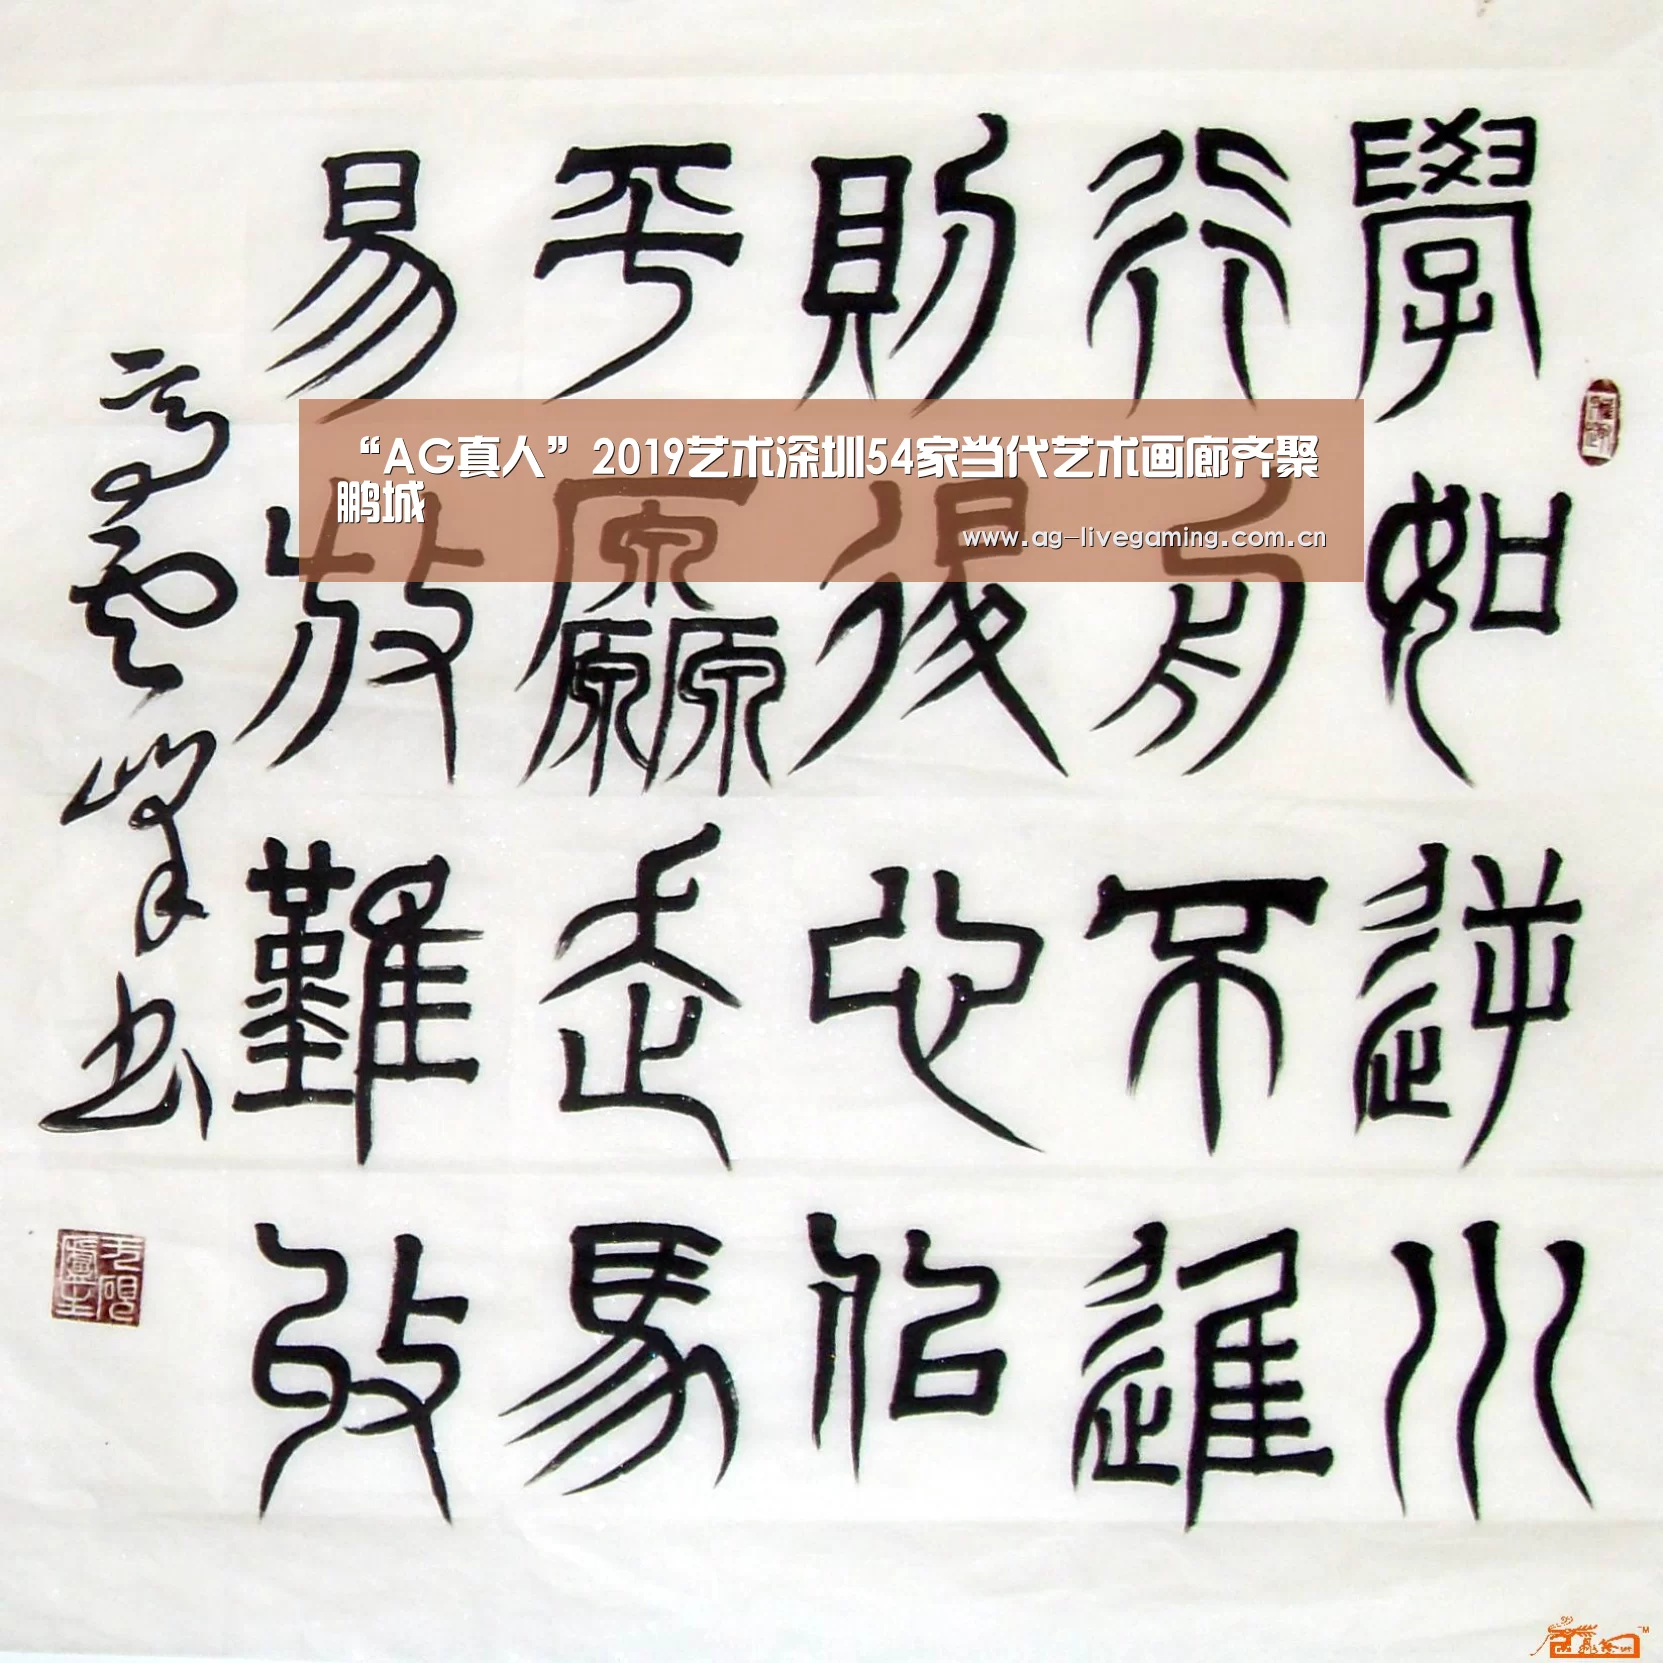 “AG真人”2019艺术深圳54家当代艺术画廊齐聚
鹏城
www.ag-livegaming.com.cn
學如逆川
行舟不進
則退心佀
平厵走馬
易放難收
高雲峯书